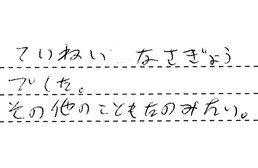 ていねい なさぎょう
でした。
その他のこともたのみたい。